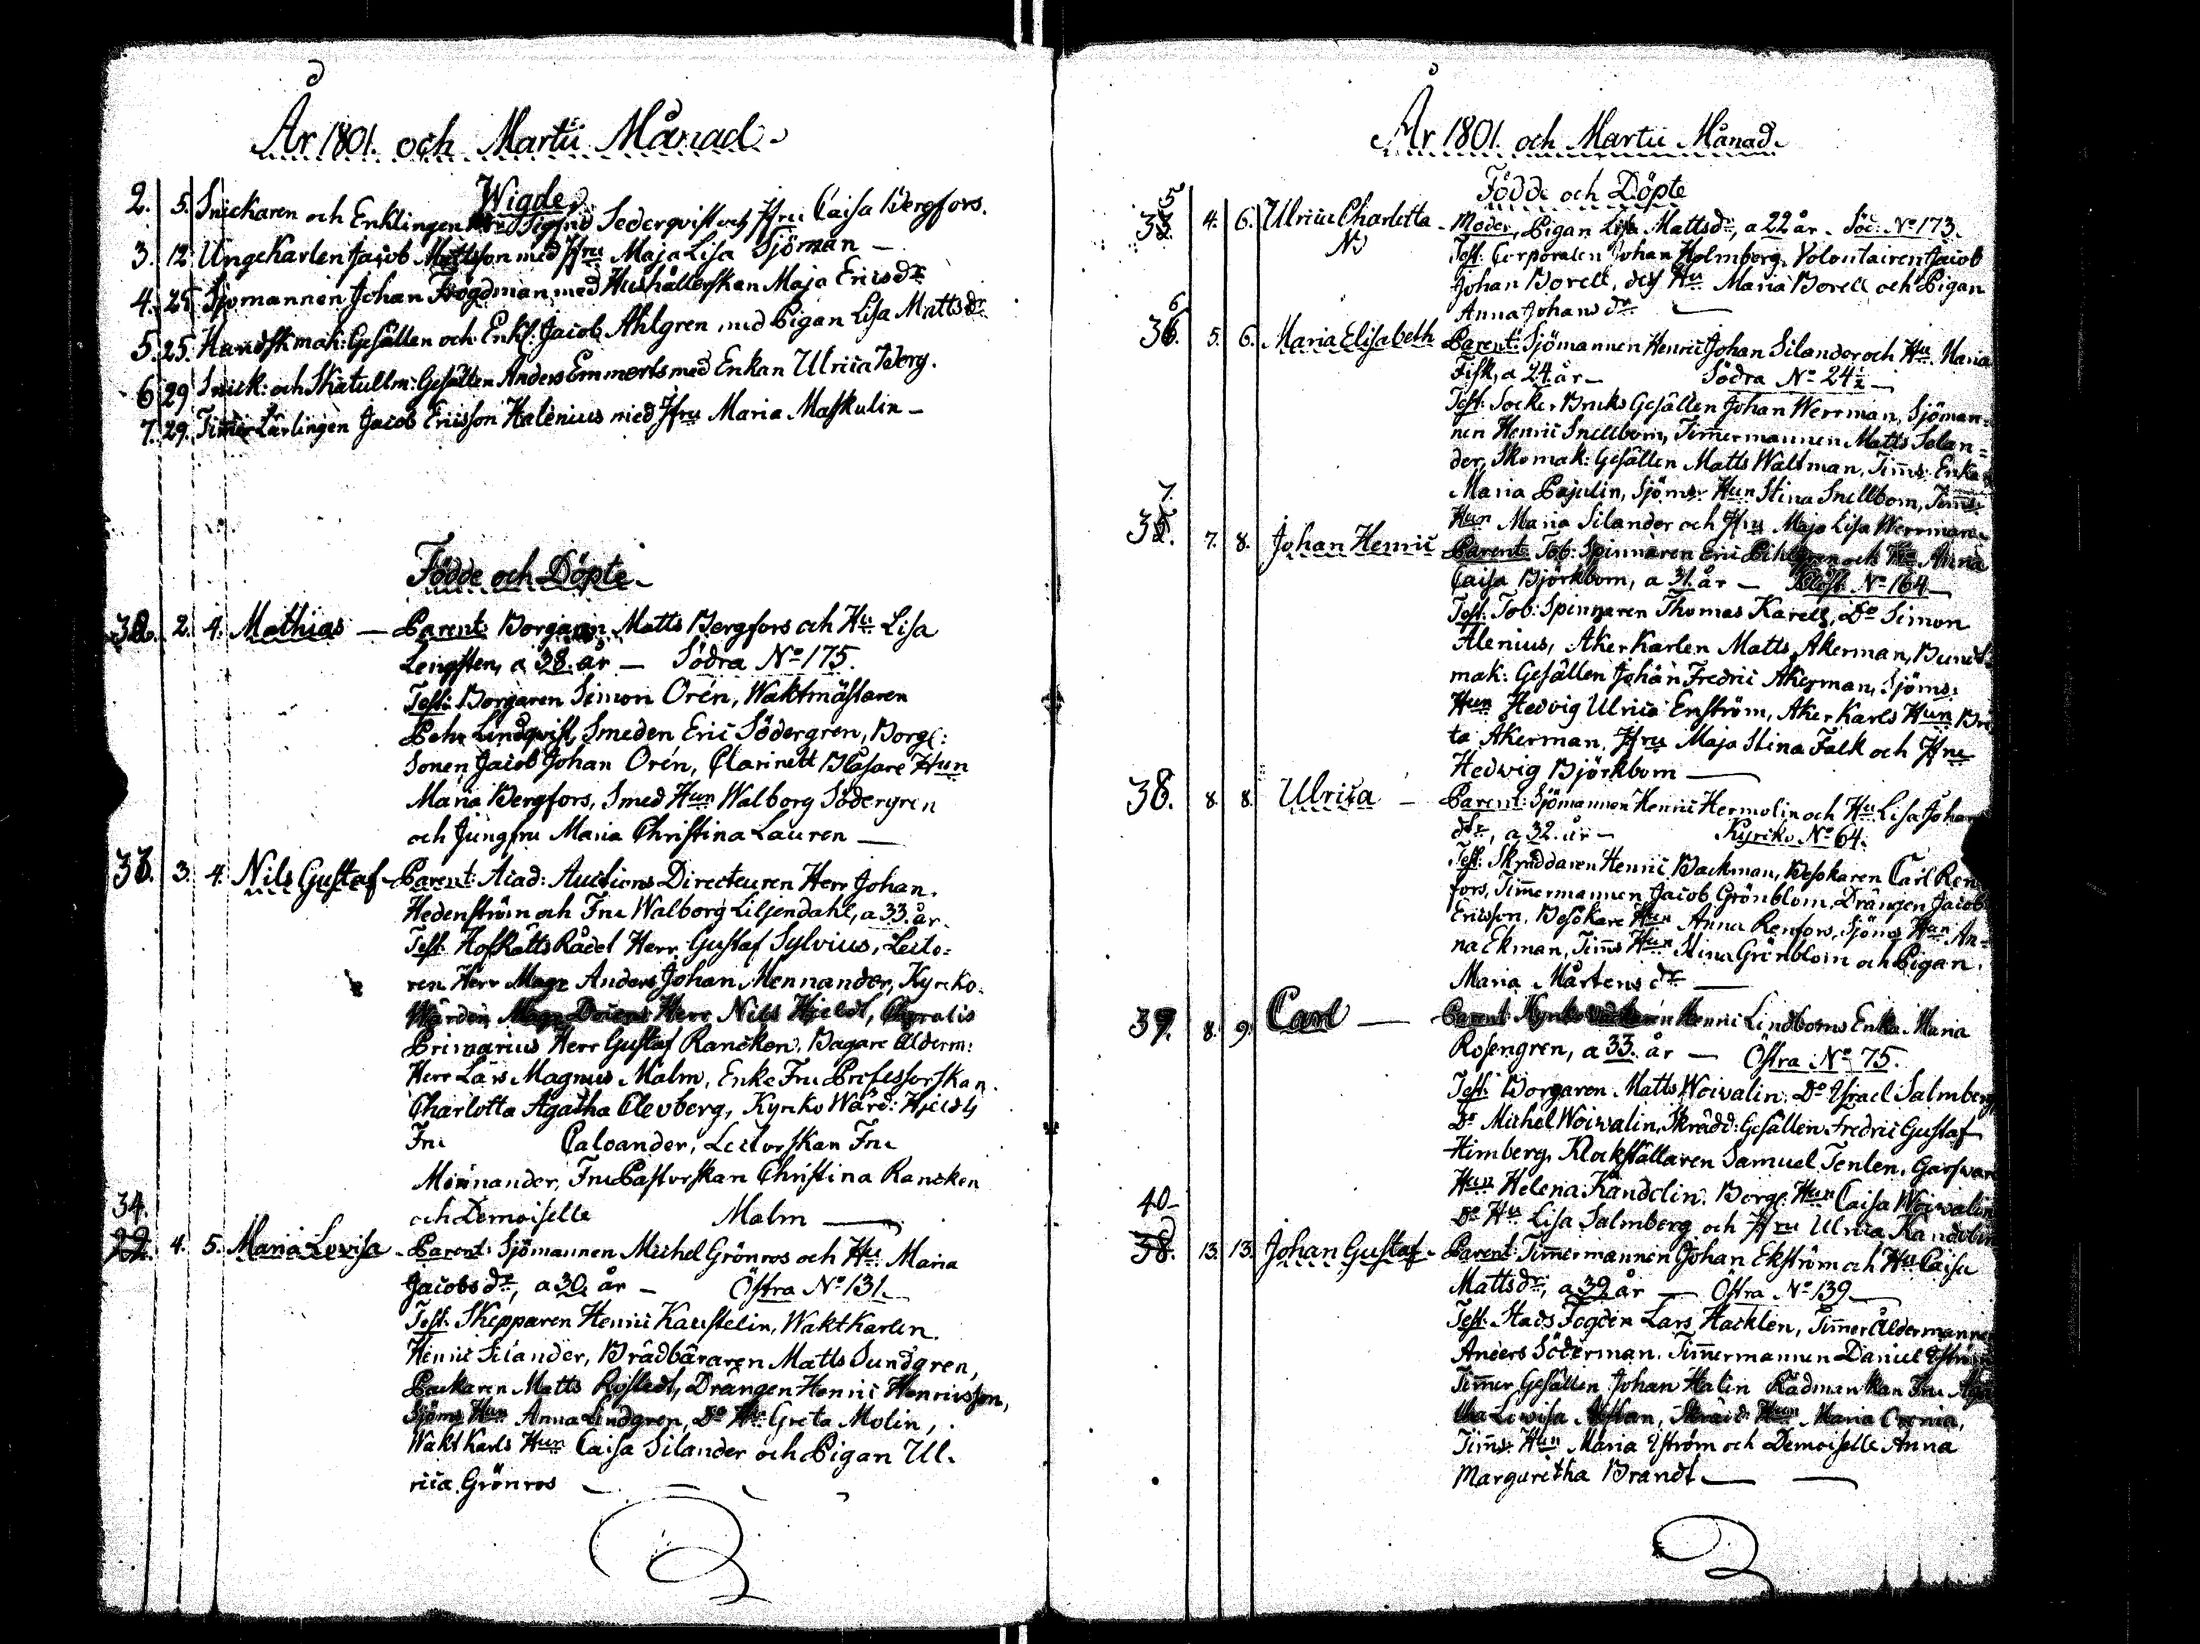 År 1801. och Martii Månad.
Wigde.
2. 5. Snickaren och Enklingen Sigfrid Sederqvist och Jfru Caisa Bergfors.
3. 12. Ungekarlen Jacob Mattsson med Jfru Maja Lisa Sjöman —
4. 25. Sjömannen Johan Frögdman med Hushållerskan Maja Ericsdr
5. 25. Handskmak: Gesällen och Enkl: Jacob Ahlgren med Pigan Lisa Mattsdr
6 29 Snick: och Skatullm: Gesällen Anders Emmerts med Enkan Ulrica Berg.
7. 29. Timer Lärlingen Jacob Ericsson Halenius med Jfru Maria Maskulin —
Födde och Döpte.
32. 2. 4. Mathias — Parent: Borgaren Matts Bergfors och Hu Lisa
Lengsten, a 38. år — Södra No 175.
Test: Borgaren Simon Orén, Waktmästaren
Pehr Lindqvist, Smeden Eric Södergren, Borg:
Sonen Jacob Johan Orén, Clarinett Blåsare Hun
Maria Bergfors, Smed Hun Walborg Södergren
och Jungfru Maria Christina Lauren —
33. 3. 4. Nils Gustaf - Parent: Acad: Auctions Directeuren Herr Johan
Hedenström och Fru Walborg Liljendahl, a 33. år.
Test: HofRätts Rådet Herr Gustaf Sylvius, Lecto-
ren Herr Mag: Anders Johan Mennander, Kyrko-
Wärden Herr Nils Hjeldt,
Primarius Herr Gustaf Rancken, Bagare Ålderm:
Herr Lars Magnus Malm, Enke Fru Professorskan
Charlotta Agatha Clevberg, Kyrko Wärd: Hjeldts
Fru Caloander, Lectorskan Fru
Mennander, Fru Pastorskan Christina Rancken
och Demoiselle Malm —
34.
4. 5. Maria Lovisa - Parent: Sjömannen Michel Grönros och Hu Maria
Jacobsdr, a 30. år — Östra No 131.
Test: Skepparen Henric Kaustelin, Waktkarlen
Henric Silander, Brädbäraren Matts Sundgren,
Packaren Matts Rosledt, Drängen Henric Henricsson,
Sjöms Hun Anna Lindgren, Do Hu Greta Molin,
Wakt Karls Hun Caisa Silander och Pigan Ul-
rica Grönros —
År 1801. och Martii Månad.
Födde och Döpte
35 4. 6. Ulrica Charlotta - Moder, Pigan Lisa Mattsdr, a 22 år. Söd: No 173.
Test: Corporalen Johan Holmberg, Volontairen Jacob
Johan Borell, dess Hu Maria Borell och Pigan
Anna Johansdr —
36. 5. 6. Maria Elisabeth Parent: Sjömannen Henric Johan Silander och Hu Maria
Fisk, a 24. år — Södra No 24½ —
Test: Socker Bruks Gesällen Johan Werrman, Sjöman-
nen Henric Snellbom, Timmermannen Matts Selan-
der, Skomak: Gesällen Matts Waltman, Tims: Enka
Maria Pajulin, Sjöms: Hun Stina Snellbom, Tims:
Hun Maria Silander och Jfru Maja Lisa Werrman
37. 7. 8. Johan Henric Parent: Tob: Spinnaren Eric Pihlgren och Hu Anna
Caisa Björkbom, a 31. år — No 164 —
Test: Tob: Spinnaren Thomas Karell, Do Simon
Alenius, Åkerkarlen Matts Åkerman, Bundt-
mak: Gesällen Johan Fredric Åkerman, Sjöms:
Hun Hedvig Ulrica Enström, Åker Karls Hun Bri
ta Åkerman, Jfru Maja Stina Falk och Jfru
Hedwig Björkbom —
38. 8. 8. Ulrica — Parent: Sjömannen Henric Hermolin och Hu Lisa Johan
dr, a 32. år — Kyrko No 64.
Test: Skräddaren Henric Backman, Besökaren Carl Ren
fors, Timmermannen Jacob Grönblom, Drängen Jacob
Ericsson, Besökare Hun Anna Renfors, Sjöms Hun An-
na Ekman, Tims Hun Stina Grönblom och Pigan
Maria Mårtensdr —
39. 8. 9. Carl — Parent: Henric Lindboms Enka Maria
Rosengren, a 33. år — Östra No 75.
Test: Borgaren Matts Woivalin, Do Israel Salmberg
Do Michel Woivalin, Skrädd: Gesällen Fredric Gustaf
Himberg, Klockställaren Samuel Tenlen, Garfvar
Hun Helena Kandolin, Borg: Hun Caisa Woivalin
Do Hu Lisa Salmberg och Jfru Ulrica Kandolin
40
13. 13. Johan Gustaf - Parent: Timmermannen Johan Ekström och Hu Caisa
Mattsdr, a 39 år — Östra No 139 —
Test: Stads Fogden Lars Hacklen, Timer Åldermannen
Anders Söderman, Timmermannen Daniel
Timer Gesällen Johan Halin Rådmanskan Fru
Lovisa Hun Maria
Tims: Hun Maria Iström och Demoiselle Anna
Margaretha Brandt —